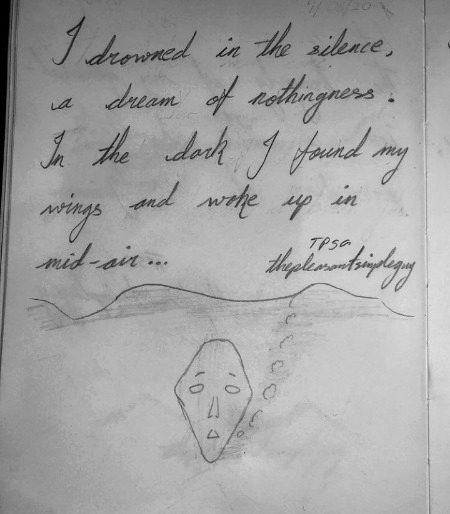 I drowned in the silence,
a dream of nothingness.
In the dark I found my
wings and woke up in
mid-air...
TPSG
thepleasantsimpleguy